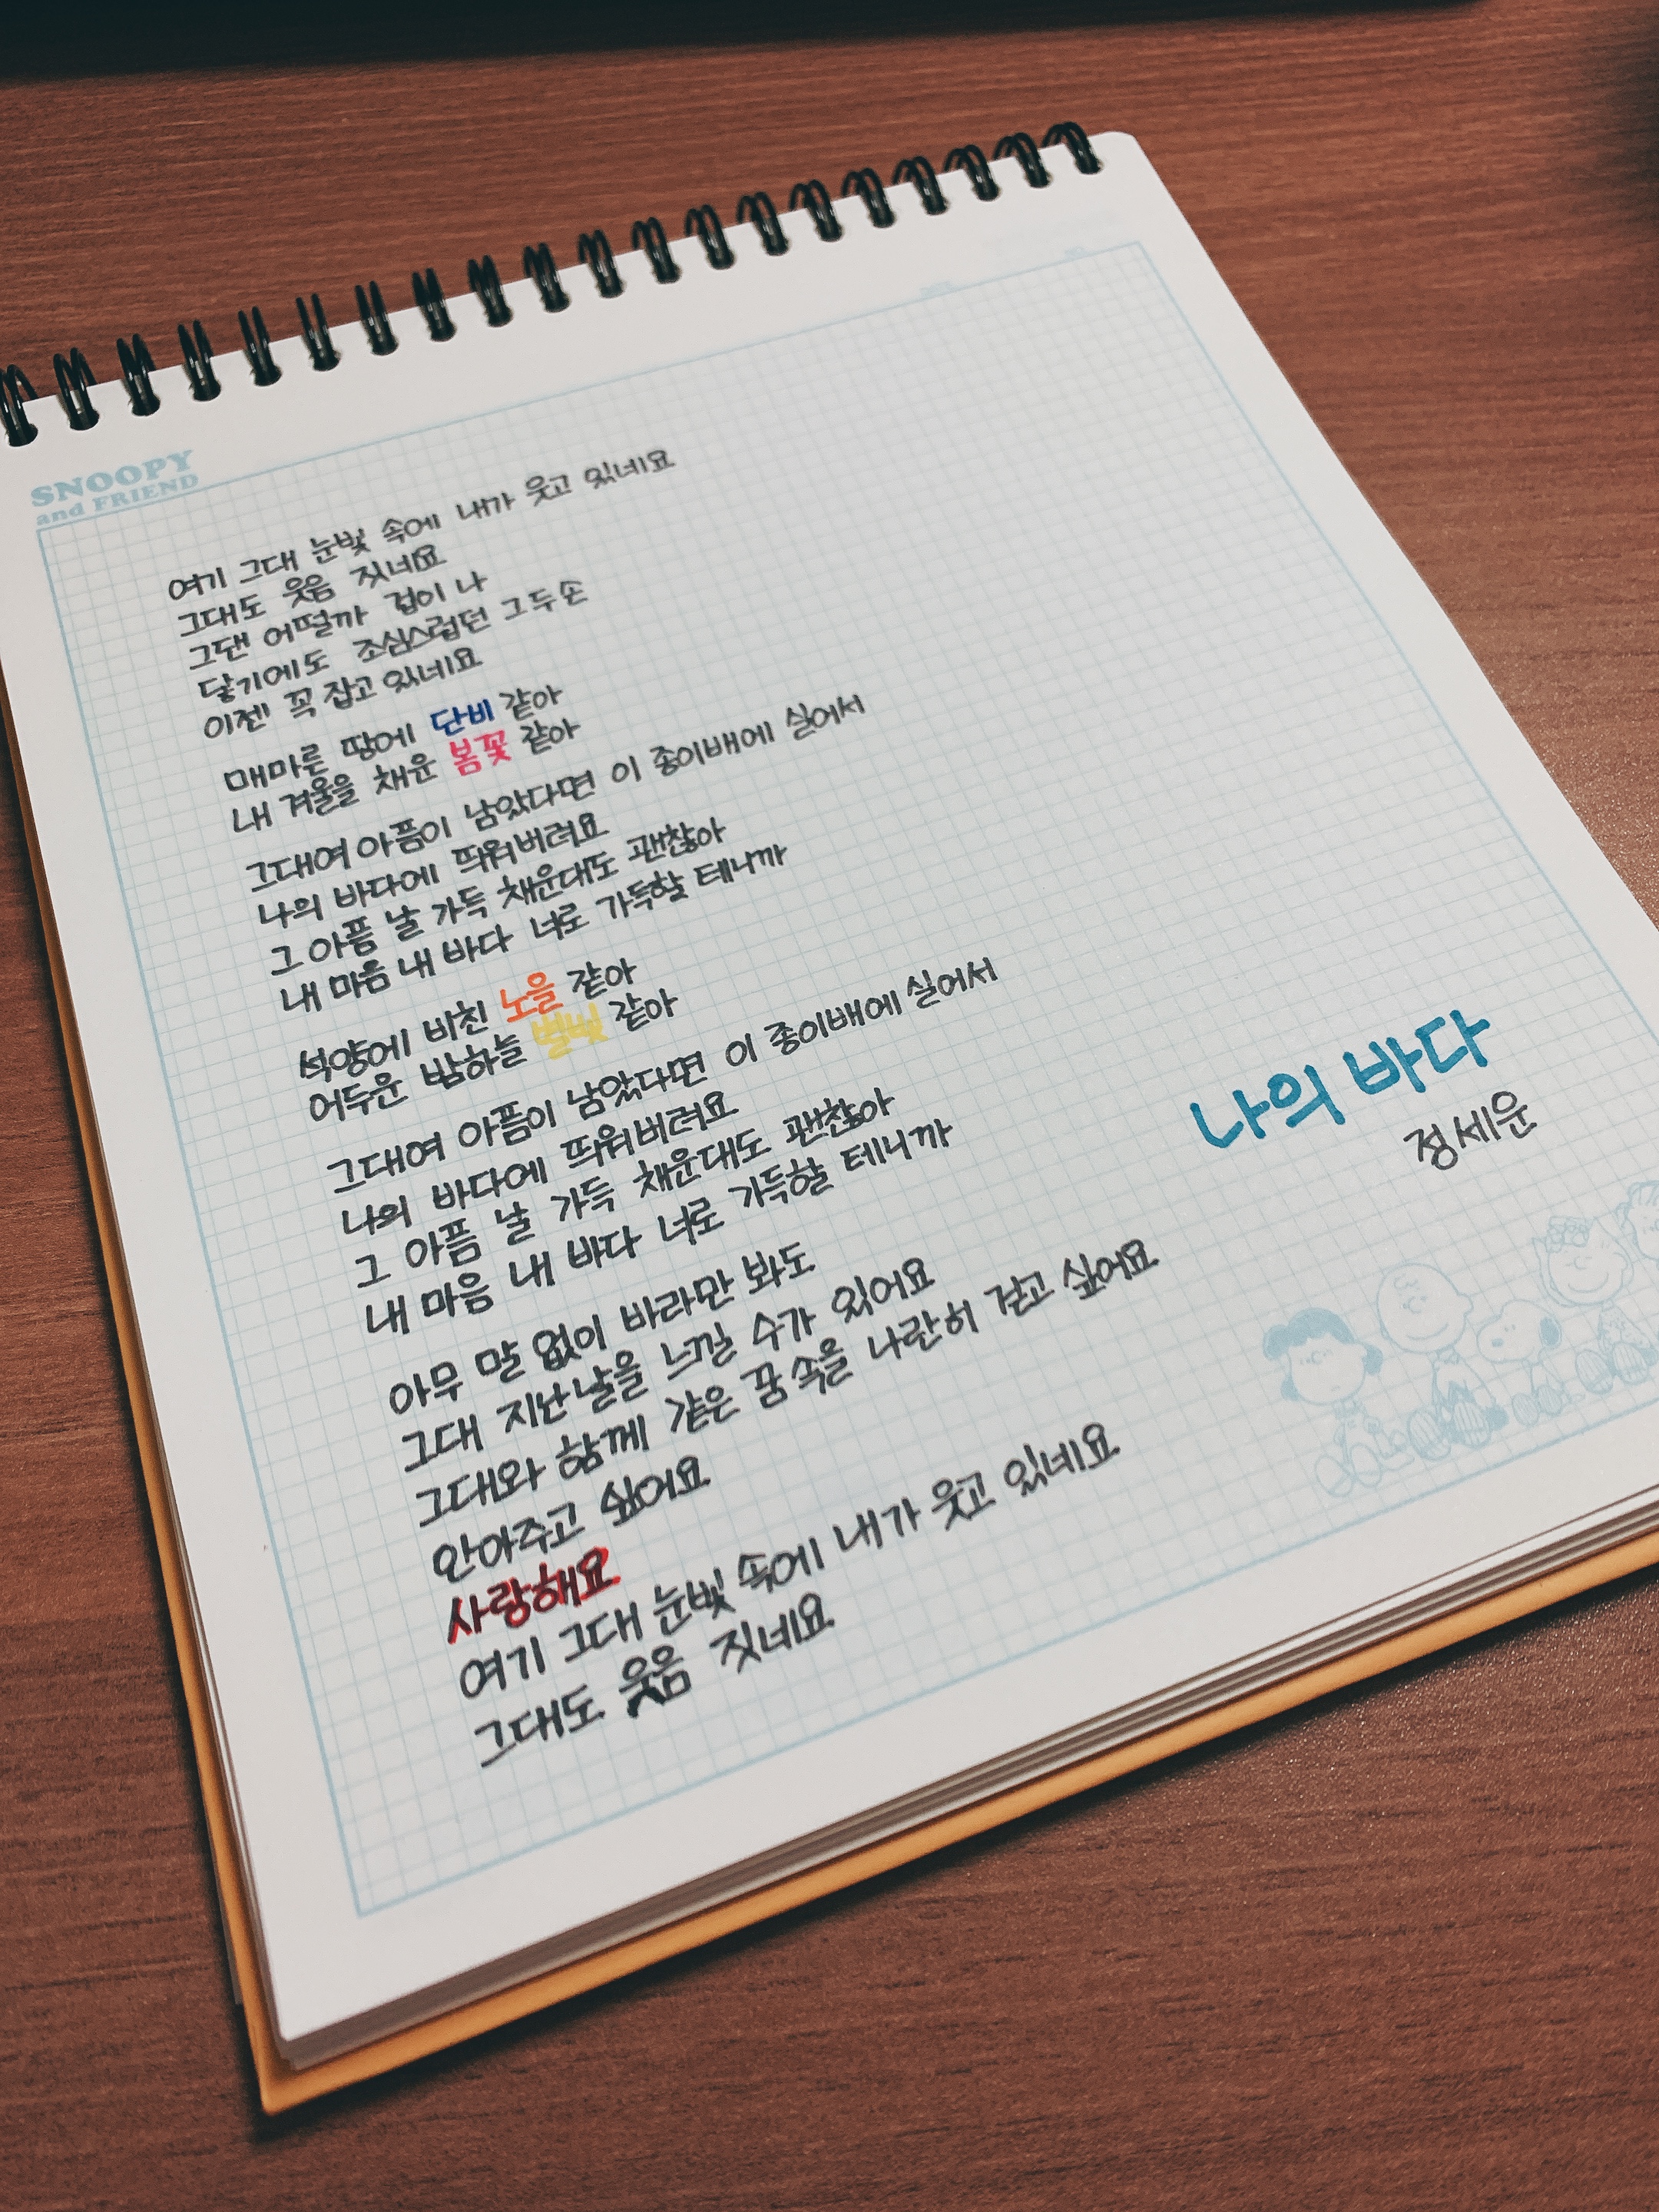 SNOOPY
and FRIEND
여기 그대 눈빛 속에 내가 웃고 있네요
그대도 웃음 짓네요
그댄 어떨까 겁이 나
닿기에도 조심스럽던 그 두 손
이젠 꼭 잡고 있네요
메마른 땅에 단비 같아
내 겨울을 채운 봄꽃 같아
그대여 아픔이 남았다면 이 종이배에 실어서
나의 바다에 띄워버려요
그 아픔 날 가득 채운대도 괜찮아
내 마음 내 바다 너로 가득할 테니까
석양에 비친 노을 같아
어두운 밤하늘 별빛 같아
그대여 아픔이 남았다면 이 종이배에 실어서
나의 바다에 띄워버려요
그 아픔 날 가득 채운대도 괜찮아
내 마음 내 바다 너로 가득할 테니까
아무 말 없이 바라만 봐도
그대 지난날을 느낄 수가 있어요
그대와 함께 같은 꿈 속을 나란히 걷고 싶어요
안아주고 싶어요
사랑해요
여기 그대 눈빛 속에 내가 웃고 있네요
그대도 웃음 짓네요
나의 바다
정세운